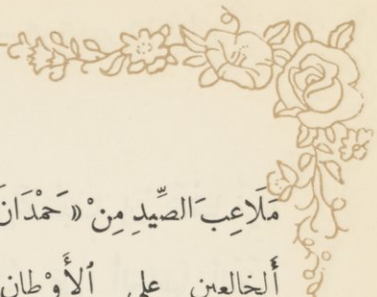 مَلَاعِبَ الصِّيدِ مِنْ «حَمْدَانَ
أَلخالعين على ٱلأَوْطان